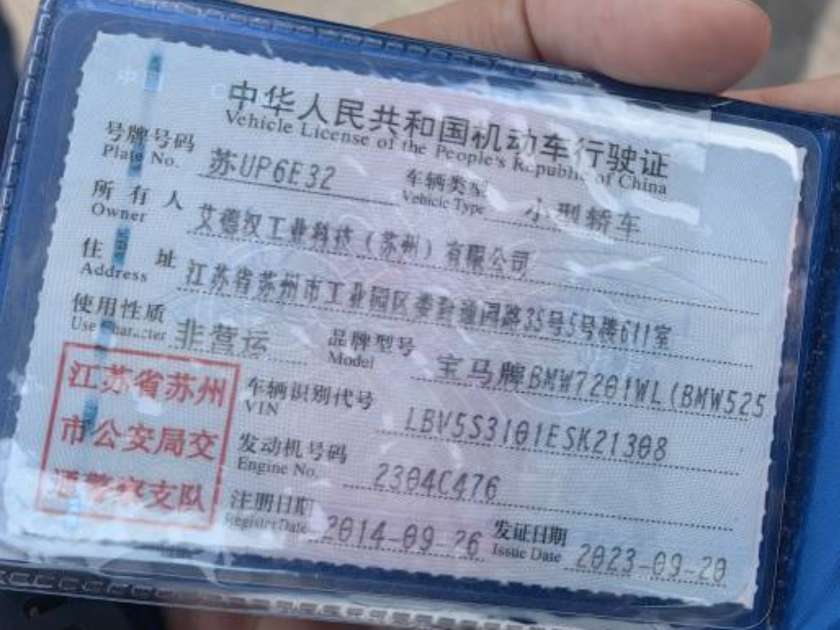 中华人民共和国机动车行驶证
Vehicle License of the People's Republic of China
号牌号码 苏UP6E32 车辆类型 小型轿车
Plate No. Vehicle Type
所有人 艾德汉工业科技（苏州）有限公司
Owner
住址 江苏省苏州市工业园区娄葑镇园路35号5号楼611室
Address
使用性质 非营运 品牌型号 宝马牌BMW7201WL(BMW525
Use Character Model
江苏省苏州
市公安局交
通警察支队
车辆识别代号 LBV5S3101ESK21308
VIN
发动机号码 2304C476
Engine No.
注册日期 2014-09-26 发证日期 2023-09-20
Register Date Issue Date